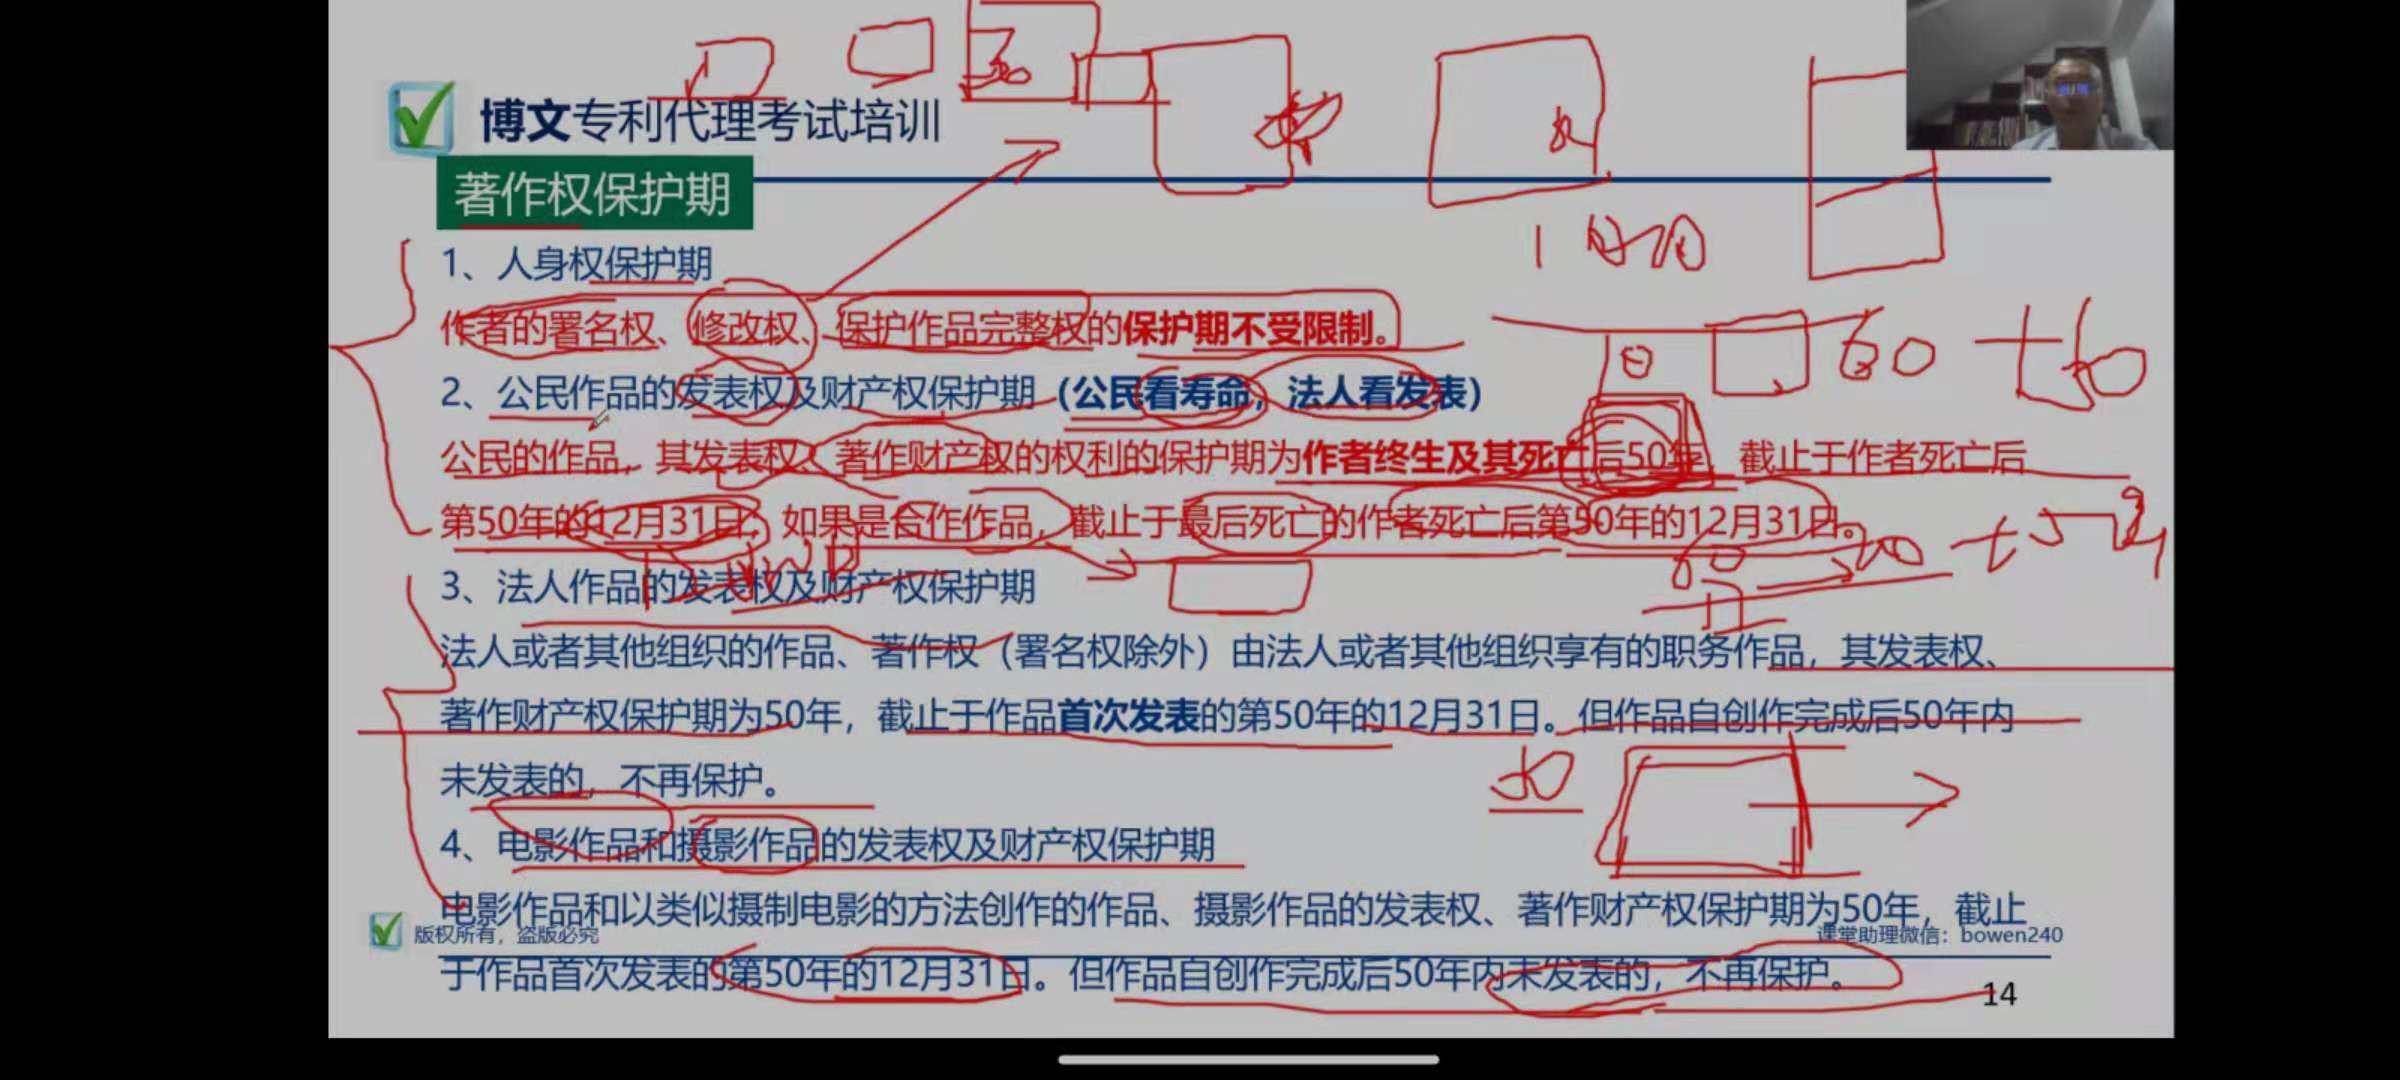 博文专利代理考试培训
著作权保护期
1、人身权保护期
作者的署名权、修改权、保护作品完整权的保护期不受限制。
2、公民作品的发表权及财产权保护期（公民看寿命，法人看发表）
公民的作品，其发表权、著作财产权的权利的保护期为作者终生及其死亡后50年，截止于作者死亡后
第50年的12月31日；如果是合作作品，截止于最后死亡的作者死亡后第50年的12月31日。
3、法人作品的发表权及财产权保护期
法人或者其他组织的作品、著作权（署名权除外）由法人或者其他组织享有的职务作品，其发表权、
著作财产权保护期为50年，截止于作品首次发表的第50年的12月31日。但作品自创作完成后50年内
未发表的，不再保护。
50
4、电影作品和摄影作品的发表权及财产权保护期
电影作品和以类似摄制电影的方法创作的作品、摄影作品的发表权、著作财产权保护期为50年，截止
版权所有，盗版必究
课堂助理微信：bowen240
于作品首次发表的第50年的12月31日。但作品自创作完成后50年内未发表的，不再保护。
14